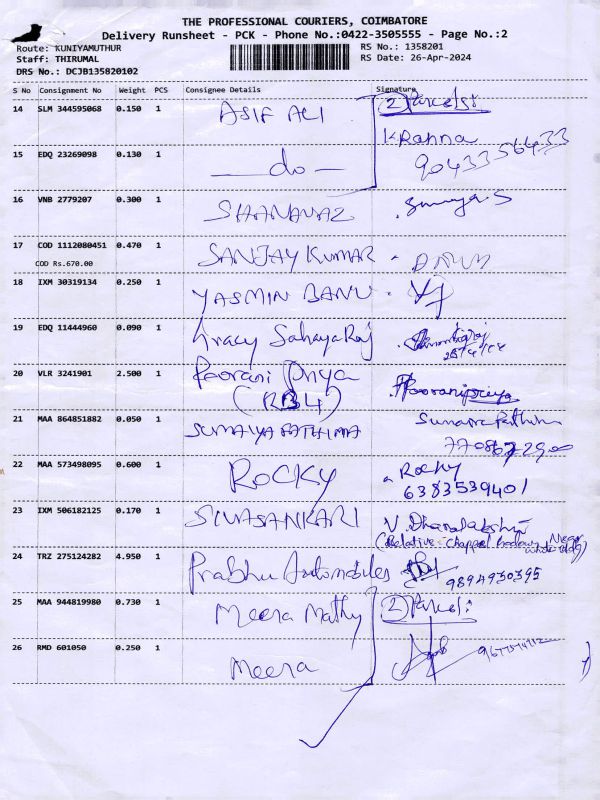 THE PROFESSIONAL COURIERS, COIMBATORE
Delivery Runsheet - PCK - Phone No.:0422-3505555 - Page No.:2
Route: KUNIYAMUTHUR
RS No.: 1358201
Staff: THIRUMAL
RS Date: 26-Apr-2024
DRS No.: DCJB135820102
S No Consignment No Weight PCS Consignee Details Signature
14 SLM 344595068 0.150 1 ASIF ALI (2) Parcels:
15 EDQ 23269098 0.130 1 —do—
16 VNB 2779207 0.300 1 SHANAVAZ
17 COD 1112080451 0.470 1 SANJAY KUMAR
COD Rs.670.00
18 IXM 30319134 0.250 1 YASMIN BANU
19 EDQ 11444960 0.090 1 Tracy SahayaRaj
20 VLR 3241901 2.500 1 Poorani Priya Pooranipriya
21 MAA 864851882 0.050 1 SUMAIYA FATHIMA
22 MAA 573498095 0.600 1 ROCKY Rocky
6383539401
23 IXM 506182125 0.170 1 SIVASANKARI
24 TRZ 275124282 4.950 1 Prabhu Automobiles 9894930395
25 MAA 944819980 0.730 1 Meera Mathy (2) Parcel:
26 RMD 601050 0.250 1 Meera